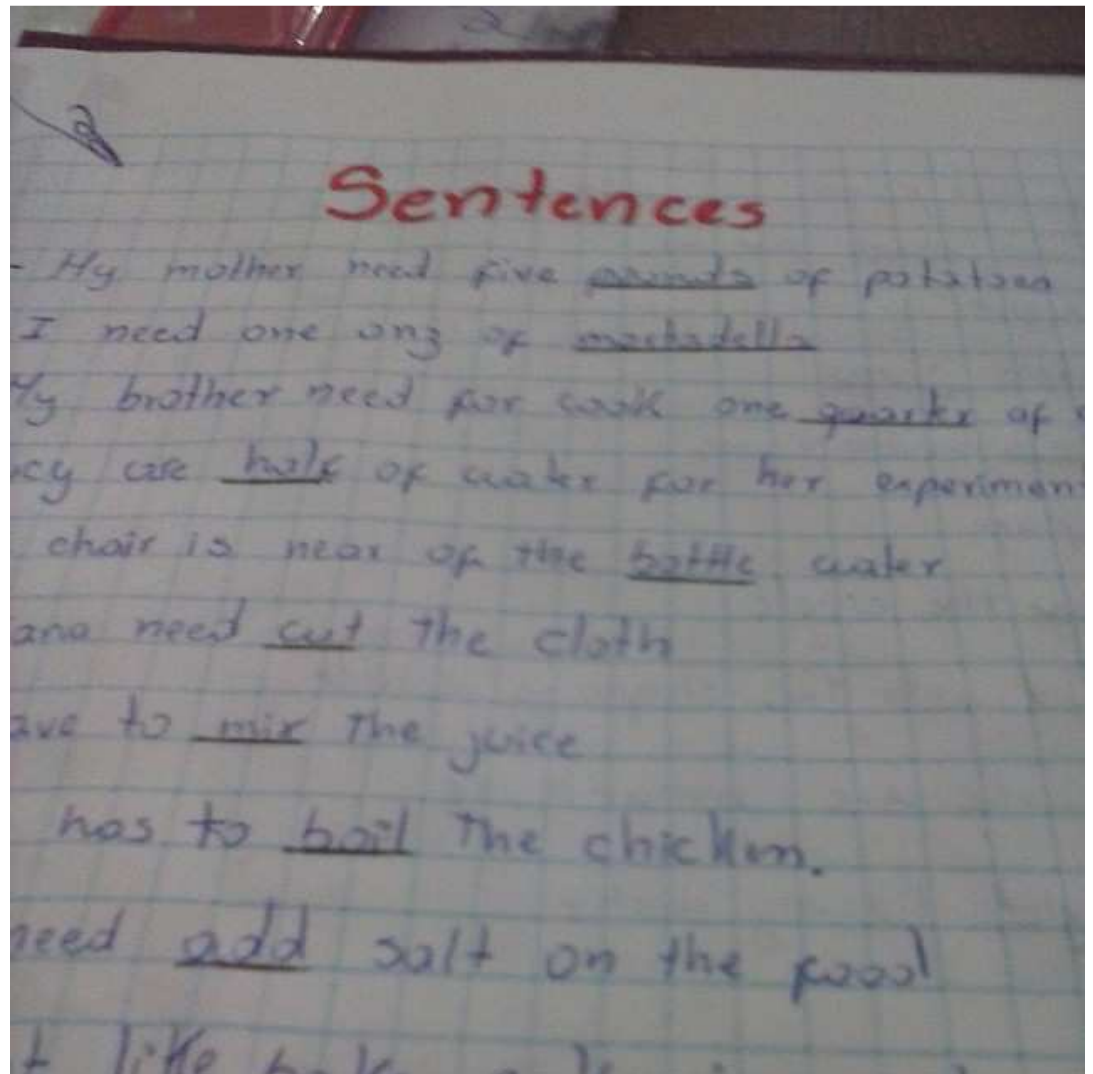 Sentences
- My mother need five pounds of potatoes
I need one onz of mortadella
My brother need for cook one quarter of
cy use half of water for her experiment
chair is near of the bottle water
ana need cut the cloth
ave to mix the juice
has to boil the chicken.
need add salt on the food
t like